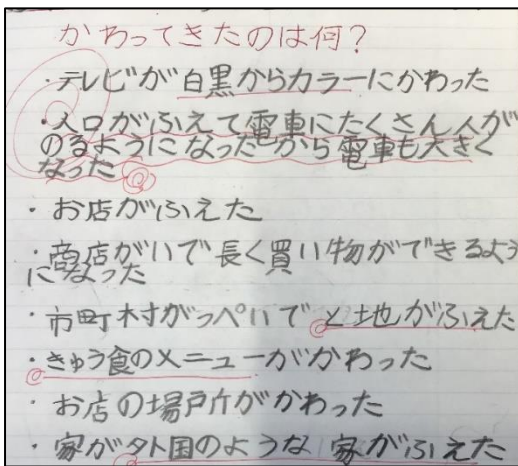 かわってきたのは何？
・テレビが白黒からカラーにかわった
・人口がふえて電車にたくさん人が
のるようになったから電車も大きく
なった
・お店がふえた
・商店がいで長く買い物ができるよう
になった
・市町村がっぺいでと地がふえた
・きゅう食のメニューがかわった
・お店の場所がかわった
・家が外国のような家がふえた